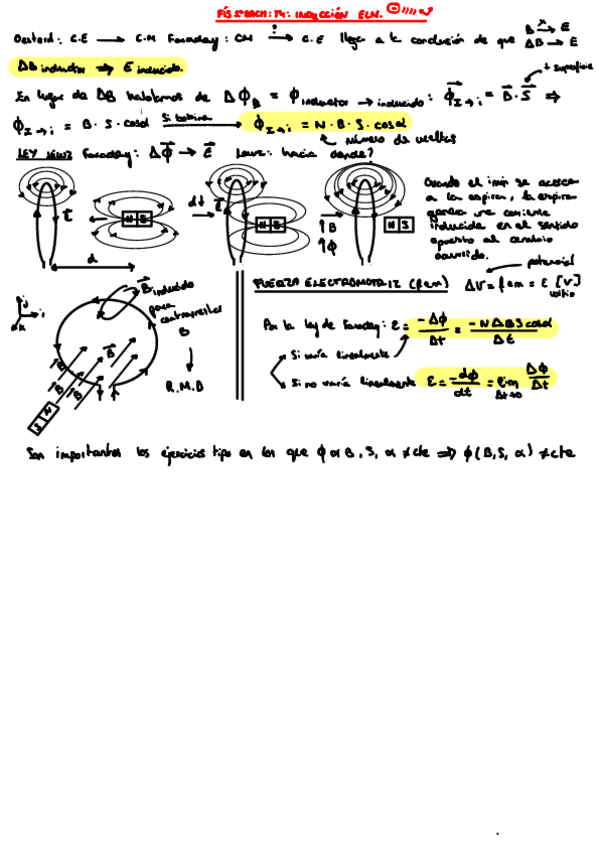 FÍS 2º BACH: T4: INDUCCIÓN ELM.
Oersted: C.E → C.M Faraday: CM →? C.E llega a la conclusión de que B ↛ E
ΔB → E
ΔB inductor ⇒ E inducido.
En lugar de ΔB hablamos de Δϕ_B = ϕ inductor → inducido: ϕ_I→i = B · S ⇒
↓ superficie
ϕ_I→i = B · S · cosα Si bobina → ϕ_I→i = N · B · S · cosα
↖ Número de vueltas
LEY LENZ Faraday: Δϕ → E Lenz: hacia donde?
Cuando el imán se acerca
a la espira, la espira
genera una corriente
inducida en el sentido
opuesto al cambio
ocurrido.
E
N S
dt
E
N S
↑B
↑ϕ
N S
d
B inducido
para
contrarrestar
B
R.M.D
j
i
k
B
B
B
B
N
S
FUERZA ELECTROMOTRIZ (fem) ΔV = fem = ε [V]
potencial
voltio
Por la ley de Faraday: ε = -Δϕ/Δt = -NΔBS cosα/Δt
Si varía linealmente
Si no varía linealmente ε = -dϕ/dt = lim Δt→0 Δϕ/Δt
Son importantes los ejercicios tipo en los que ϕ α B, S, α ≠ cte ⇒ ϕ(B, S, α) ≠ cte